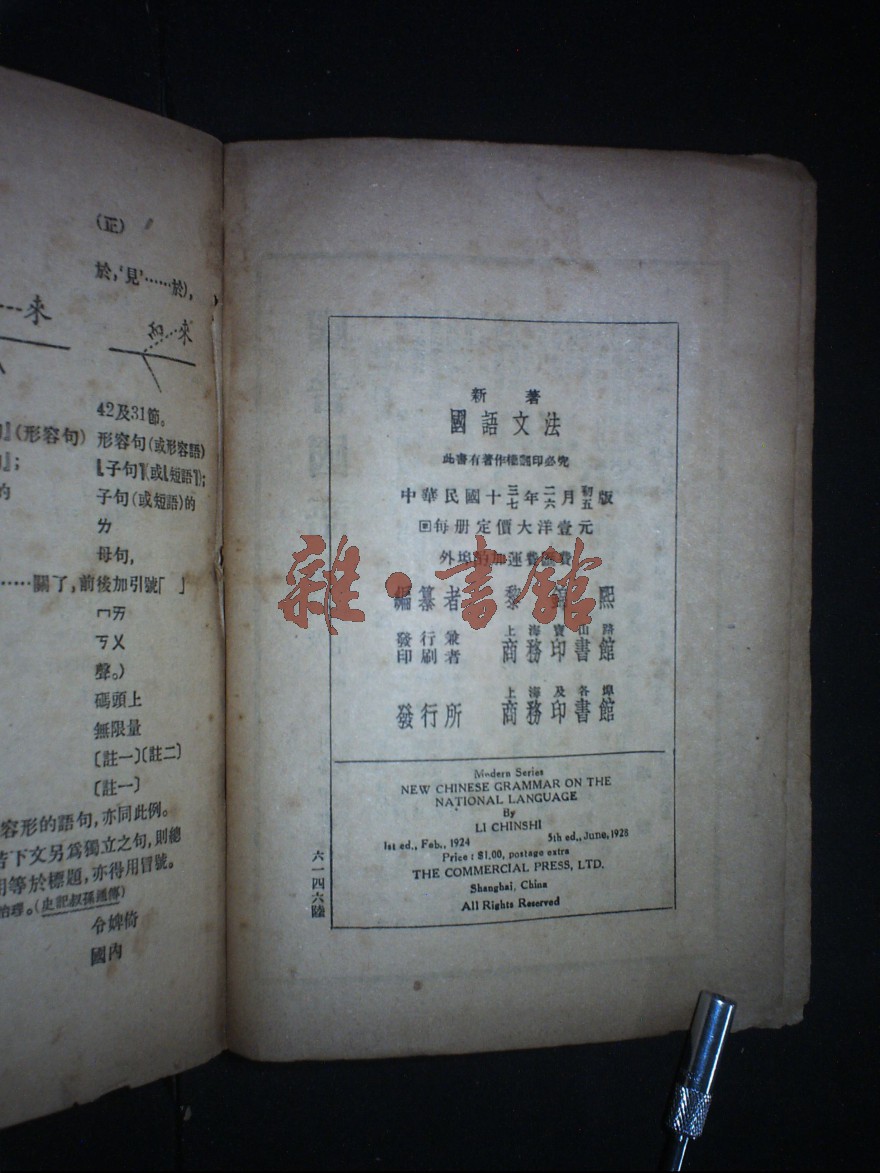 (正)
於,'見'……於),
…來
來
42及31節。
(形容句) 形容句(或形容語)
』; 『子句』(或『短語』);
的 子句(或短語)的
ㄌ
母句,
……關了,前後加引號「 」
ㄇㄞ
ㄎㄨ
聲。)
碼頭上
無限量
〔註一〕〔註二〕
〔註一〕
容形的語句,亦同此例。
若下文另爲獨立之句,則總
用等於標題,亦得用冒號。
治理。(史記叔孫通傳)
令婢倚
國內
新著
國語文法
此書有著作權翻印必究
中華民國十三年二月初版
十七年六月五版
回每册定價大洋壹元
外埠酌加運費匯費
編纂者 黎錦熙
發行兼印刷者 上海寶山路 商務印書館
發行所 上海及各埠 商務印書館
雜·書館
Modern Series
NEW CHINESE GRAMMAR ON THE
NATIONAL LANGUAGE
By
LI CHINSHI
1st ed., Feb., 1924 5th ed., June, 1928
Price : $1.00, postage extra
THE COMMERCIAL PRESS, LTD.
Shanghai, China
All Rights Reserved
六一四六陸